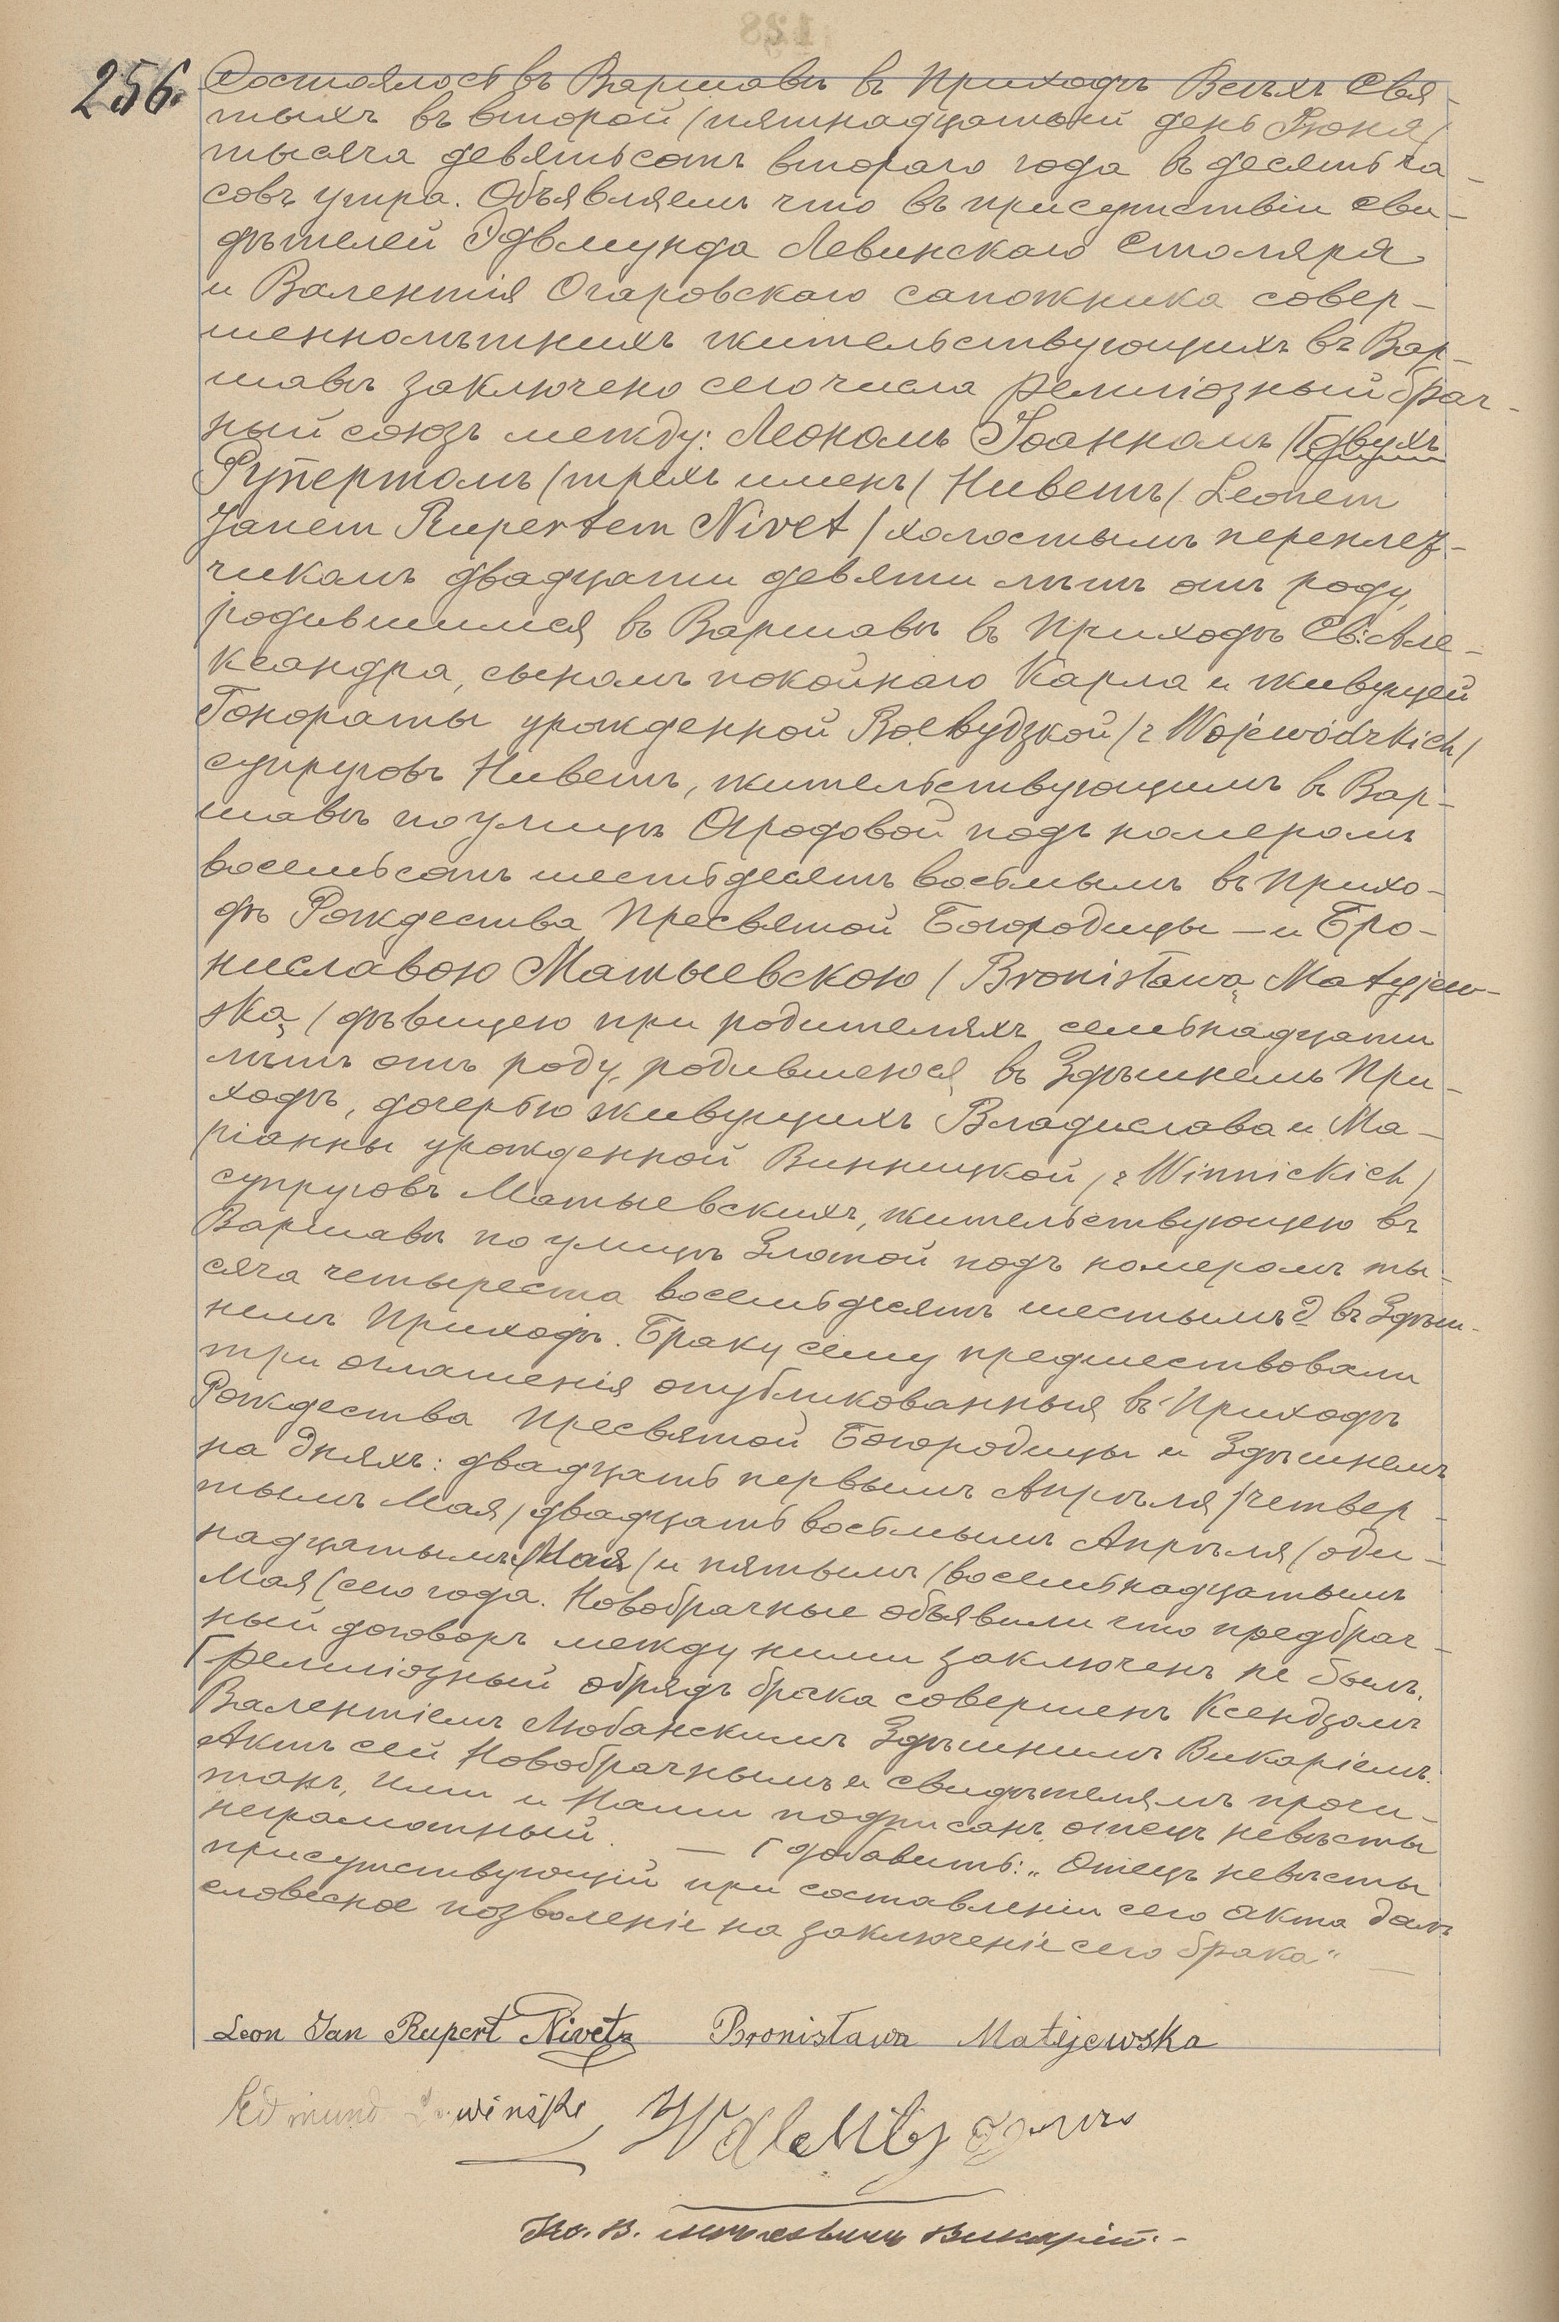 256.
Состоялось въ Варшавѣ въ Приходѣ Всѣхъ Свя-
тыхъ въ второй /пятнадцатый день Іюня/
тысяча девятьсотъ втораго года въ десять ча-
совъ утра. Объявляемъ что въ присутствіи сви-
дѣтелей Эдвмунда Левинскаго столяра
и Валентія Огаровскаго сапожника совер-
шеннолѣтнихъ жительствующихъ въ Вар-
шавѣ заключено сего числа религіозный брач-
ный союзъ между: Леономъ Іоанномъ /двухъ
Рупертомъ /трехъ именъ/ Ниветъ /Leonem
Janem Rupertem Nivet/ холостымъ переплет-
чикомъ двадцати девяти лѣтъ отъ роду,
родившимся въ Варшавѣ въ Приходѣ Св: Але-
ксандра, сыномъ покойнаго Карла и живущей
Гонораты урожденной Воевудзкой /z Wojewódzkich/
супруговъ Ниветъ, жительствующимъ въ Вар-
шавѣ по улицѣ Огродовой подъ номеромъ
восемьсотъ шестьдесятъ восьмымъ въ Прихо-
дѣ Рождества Пресвятой Богородицы — и Бро-
ниславою Матыевскою /Bronisławą Matyjew-
ską/ дѣвицею при родителяхъ семьнадцати
лѣтъ отъ роду, родившеюся въ Здѣшнемъ При-
ходѣ, дочерью живущихъ Владислава и Ма-
ріанны урожденной Винницкой /z Winnickich/
супруговъ Матыевскихъ, жительствующею въ
Варшавѣ по улицѣ Злотой подъ номеромъ ты-
сяча четыреста восемьдесятъ шестымъ д въ Здѣш-
немъ Приходѣ. Браку сему предшествовали
три оглашенія опубликованныя въ Приходѣ
Рождества Пресвятой Богородицы и Здѣшнемъ
на дняхъ: двадцать первымъ Апрѣля /четвер-
тымъ Мая/ двадцать восьмымъ Апрѣля /оди-
надцатымъ Мая/ и пятымъ /восемьнадцатымъ
Мая/ сего года. Новобрачные объявили что предбрач-
ный договоръ между ними заключенъ не былъ.
Г Религіозный обрядъ брака совершенъ Ксендзомъ
Валентіемъ Любанскимъ Здѣшнимъ Викаріемъ.
Актъ сей Новобрачнымъ и свидѣтелямъ прочи-
танъ, ими и Нами подписанъ, отецъ невѣсты
неграмотный. — Г добавить: „Отецъ невѣсты
присутствующій при составленіи сего акта далъ
словесное позволеніе на заключеніе сего брака“ —
Leon Jan Rupert Nivet Bronisława Matyjewska
Edmund Lewinski Walenty
Кс. В. Викарій.-